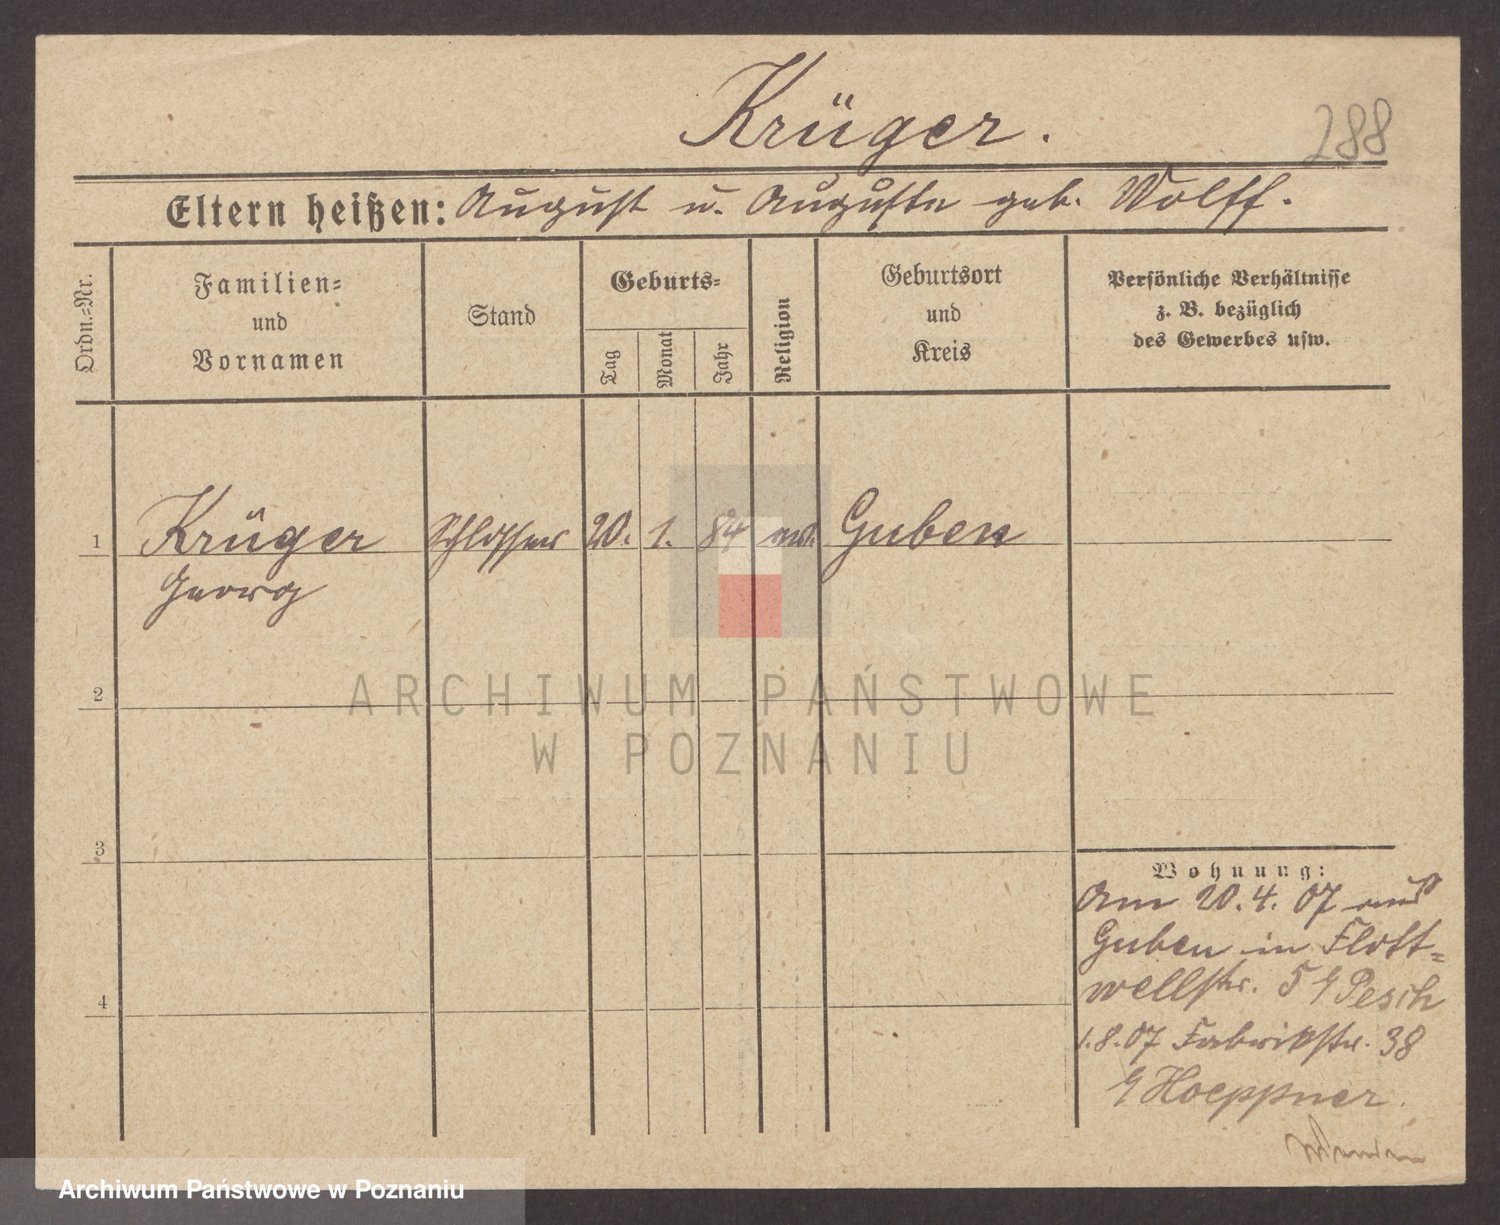 Krüger.
288
Eltern heißen: August u. Auguste geb. Wolff.
Ordn.=Nr.
Familien=
und
Vornamen
Stand
Geburts=
Tag
Monat
Jahr
Religion
Geburtsort
und
Kreis
Persönliche Verhältnisse
z. B. bezüglich
des Gewerbes usw.
1 Krüger Schlosser 20. 1. 84 ev. Guben
Georg
2
3
4
Wohnung:
Am 20. 4. 07 aus
Guben in Flott=
wellstr. 5 b/Pesch
1. 8. 07 Fabrikstr. 38
b/Hoeppner.
ARCHIWUM PAŃSTWOWE
W POZNANIU
Archiwum Państwowe w Poznaniu